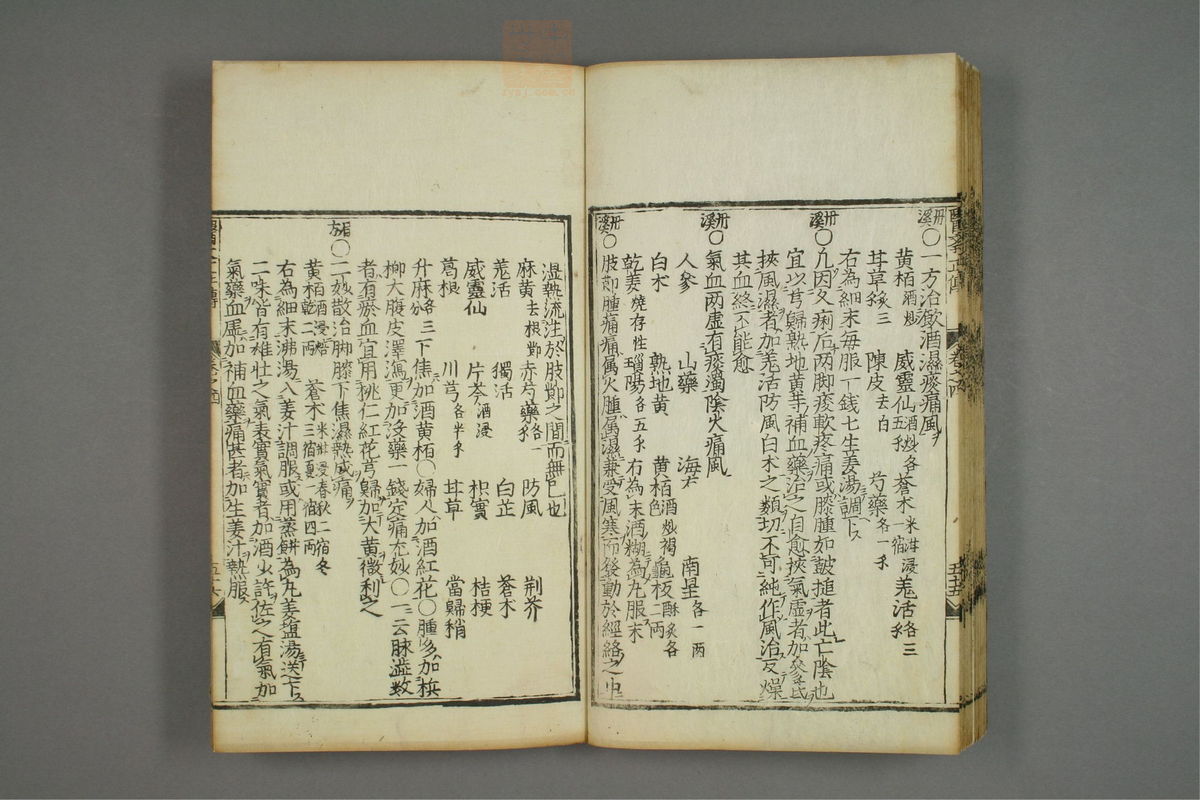 丹溪○一方治飲酒濕痰痛風
黄栢酒炒 威靈仙酒炒各五分 蒼术米泔浸一宿 羌活各三
甘草炙三 陳皮去白 芍藥各一分
右為細末每服一錢七生姜湯調下
丹溪○凡因久痢后两脚痠軟疼痛或膝腫如皷搥者此亡陰也
宜以芎歸熟地黄等補血藥治之自愈挾氣虚者加參芪
挾風濕者加羌活防風白术之類切不可純作風治反燥
其血終不能愈
丹溪○氣血两虚有痰濁陰火痛風
人參 山藥 海石 南星各一两
白术 熟地黄 黄栢酒炒褐色 龜板酥炙各二两
乾姜燒存性 瑣陽各五分 右為末酒糊為丸服末
丹溪○肢節腫痛痛属火腫属濕兼受風寒而發動於經絡之中
濕熱流注於肢節之間而無已也
麻黄去根節 赤芍藥各一分 防風 荆芥
羌活 獨活 白芷 蒼术
威靈仙 片芩酒浸 枳實 桔梗
葛根 川芎各半分 甘草 當歸稍
升麻各三分 下焦加酒黄栢○婦人加酒紅花○腫多加檳
榔大腹皮澤瀉更加沒藥一錢定痛尤妙○一云脉澁数
者有瘀血宜用桃仁紅花芎歸加大黄微利之
○二妙散治脚膝下焦濕熱成痛
黄栢酒浸焙乾二两 蒼术米泔浸春秋二宿冬三宿夏一宿四两
右為細末沸湯入姜汁調服或用蒸餅為丸姜塩湯送下
二味皆有雄壮之氣表實氣實者加酒少許佐之有氣加
氣藥血虚加補血藥痛甚者加生姜汁熱服